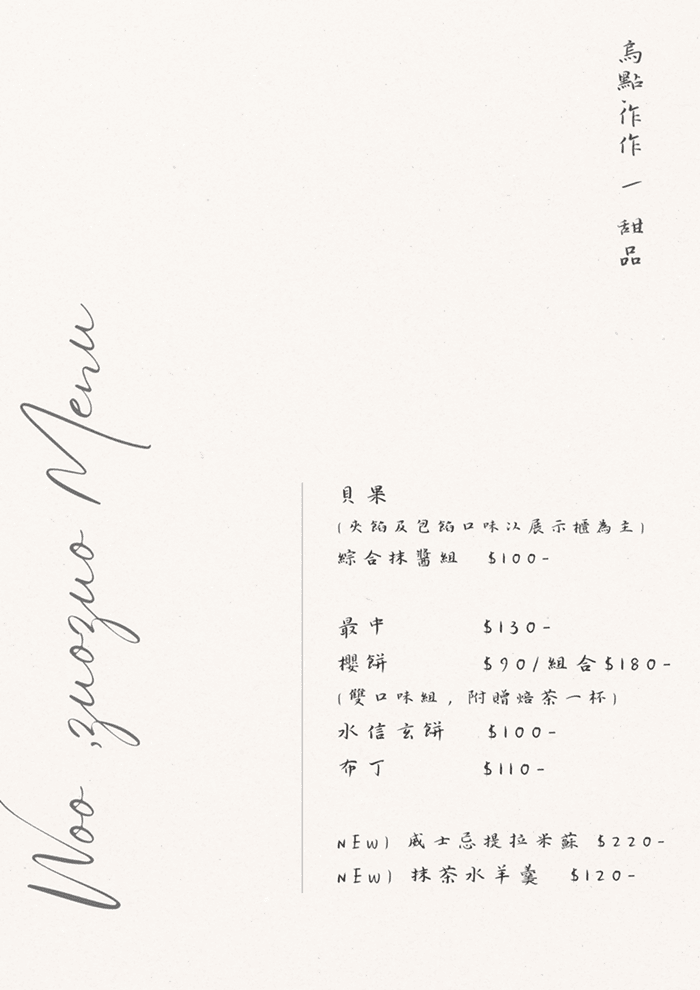 烏點作作 一 甜品
Woo zuozuo Menu
貝果
(夾餡及包餡口味以展示櫃為主)
綜合抹醬組 $100-
最中 $130-
櫻餅 $90/組合$180-
(雙口味組, 附贈焙茶一杯)
水信玄餅 $100-
布丁 $110-
NEW) 威士忌提拉米蘇 $220-
NEW) 抹茶水羊羹 $120-